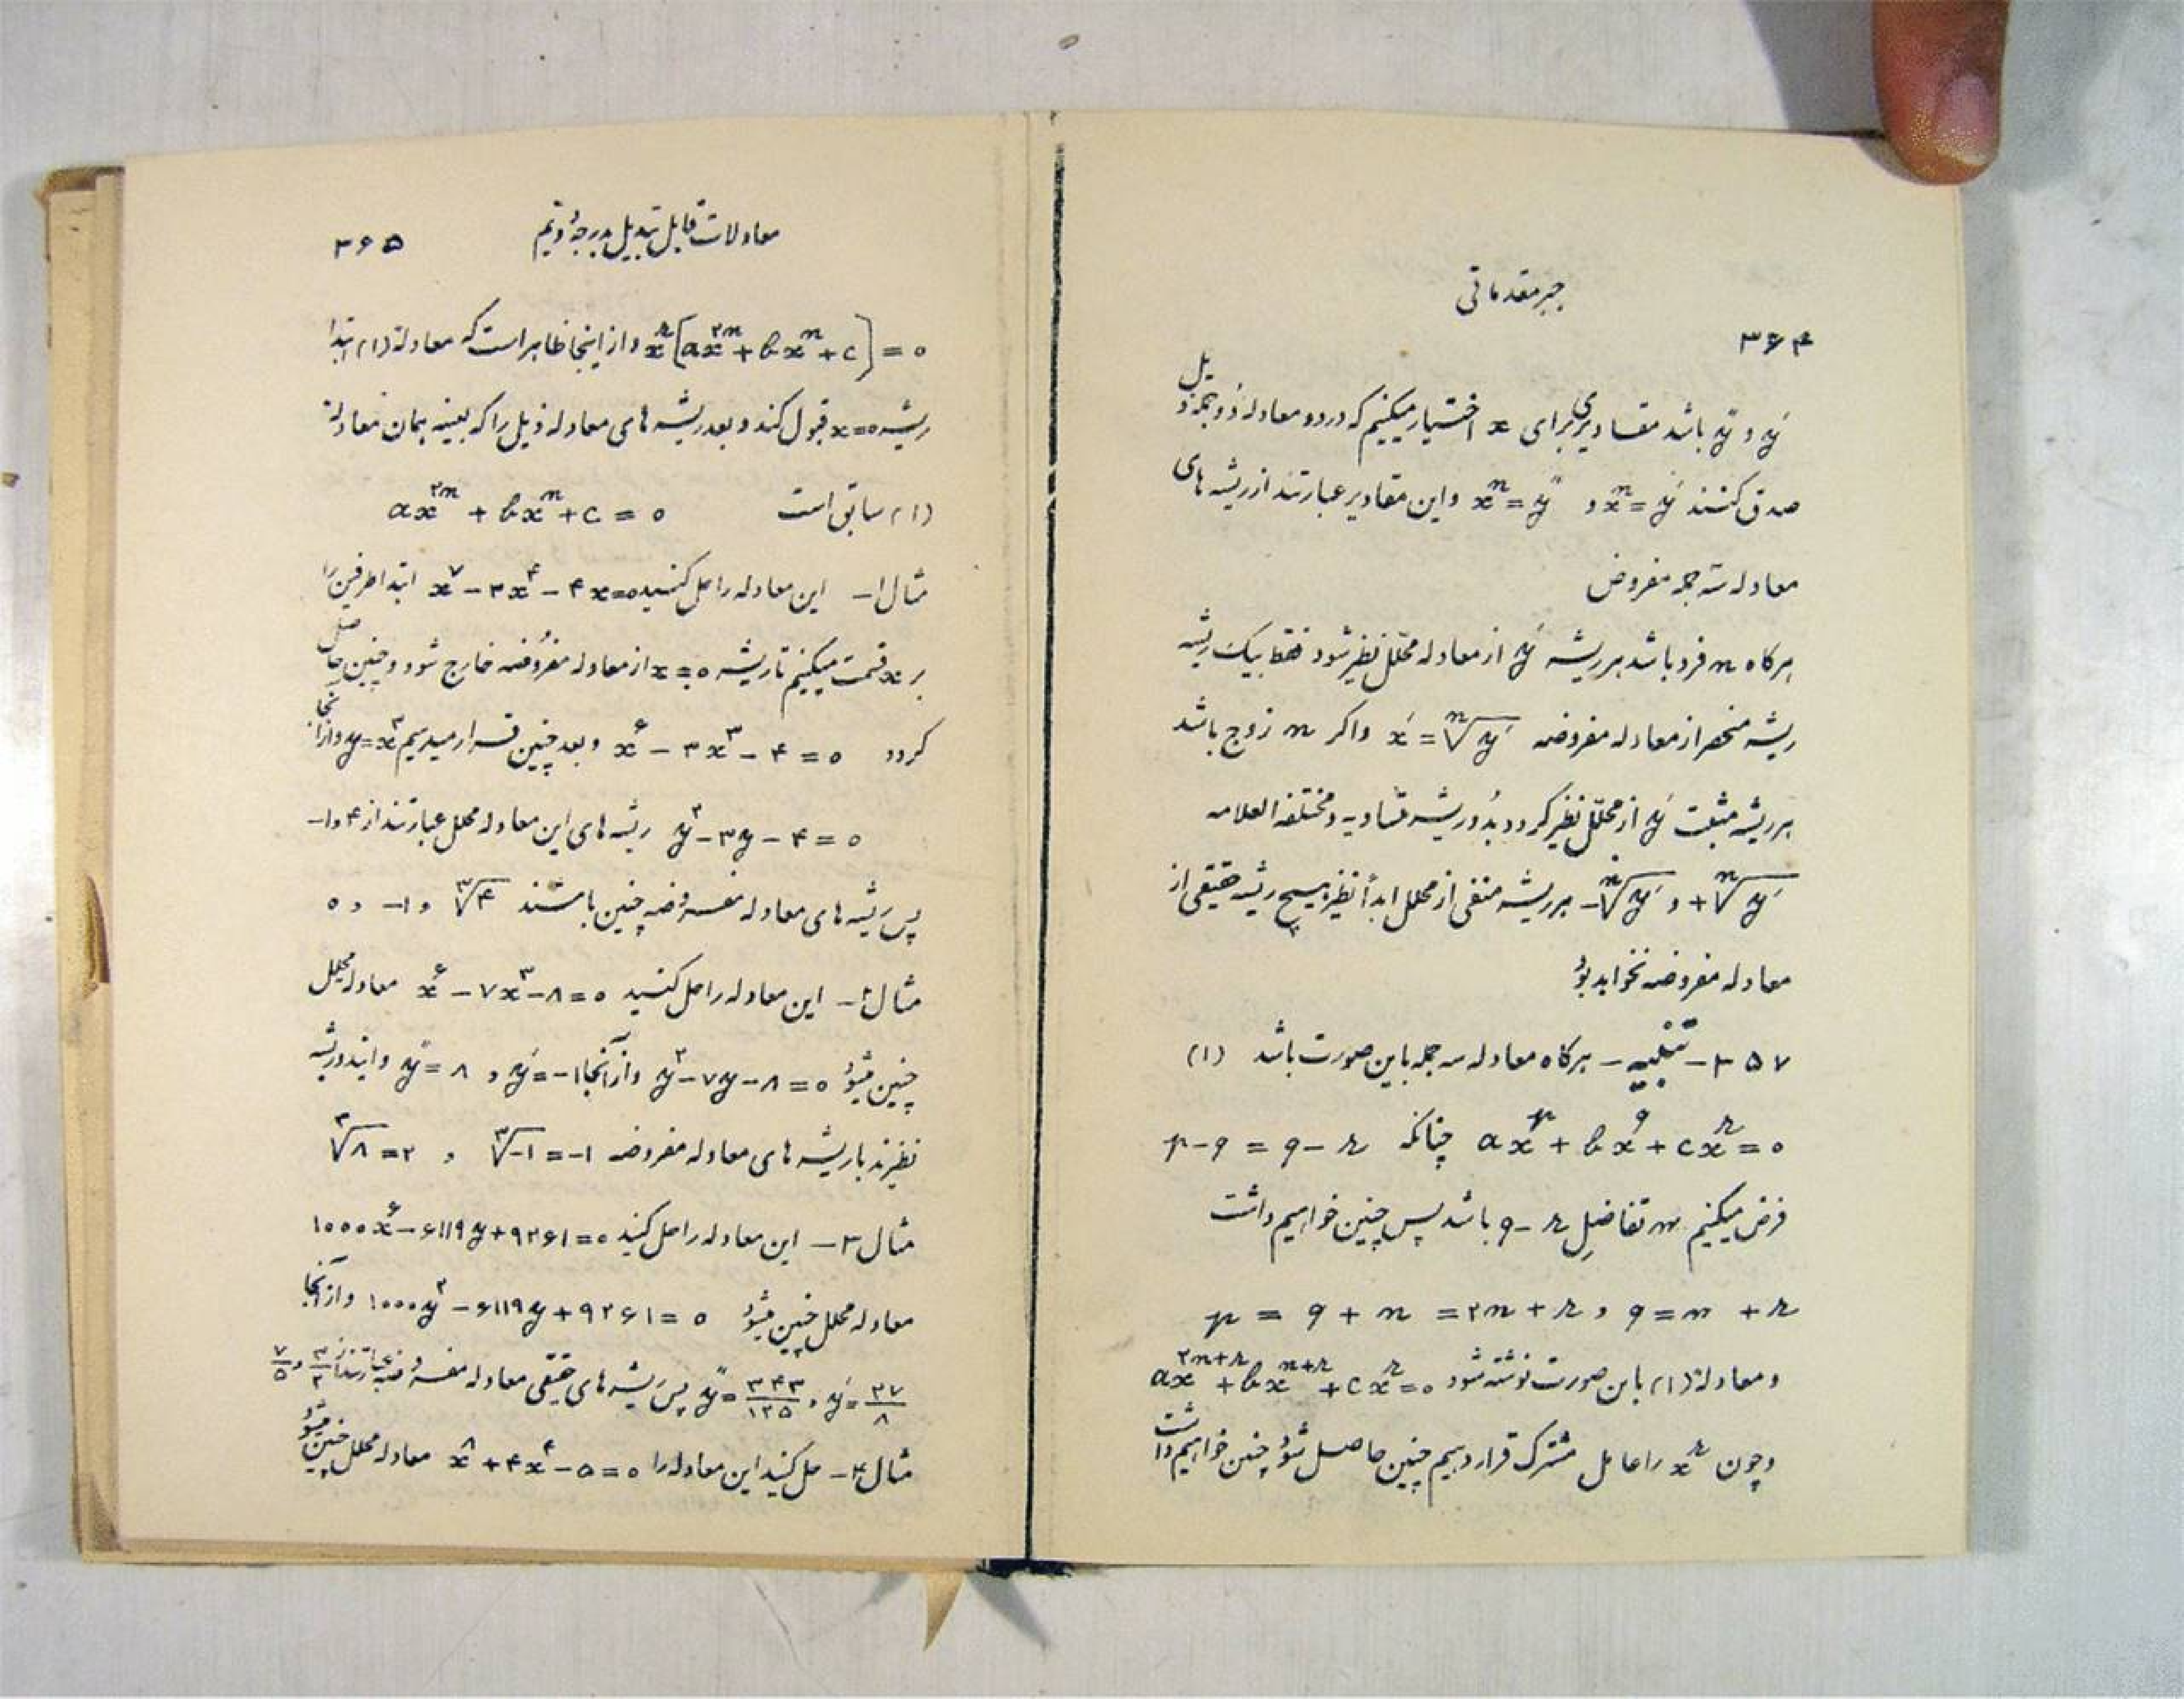 جبر مقدماتی
۳۶۴
y′ و y″ باشد مقادیری برای x اختیار میکنیم که در دو معادله دو جمله ذیل
صدق کنند xⁿ = y′ و xⁿ = y″ و این مقادیر عبارتند از ریشه های
معادله سه جمله مفروض
هر کاه n فرد باشد هر ریشه y′ از معادله محلل نظیر شود فقط بیک ریشه
ریشه منحصر از معادله مفروضه x′ = ⁿ√y′ واکر n زوج باشد
هر ریشه مثبت y′ از محلل نظیر کردد بدو ریشه متساویه و مختلفة العلامه
+ⁿ√y′ و -ⁿ√y′ هر ریشه منفی از محلل ابداً نظیر هیچ ریشه حقیقی از
معادله مفروضه نخواهد بود
۳۵۷ - تنبیه - هر کاه معادله سه جمله باین صورت باشد (۱)
axᵖ + bx^q + cxʳ = ۰ چنانکه p-q = q-r
فرض میکنیم n تفاضل q-r باشد پس چنین خواهیم داشت
p = q + n = ۲n + r , q = n + r
و معادلهٔ (۱) باین صورت نوشته شود ax^(۲n+r) + bx^(n+r) + cxʳ = ۰
و چون xʳ را عامل مشترک قرار دهیم چنین حاصل شود چنین خواهیم داشت
معادلات قابل تبدیل بدرجهٔ دویم ۳۶۵
xʳ[ax^(۲n) + bxⁿ + c] = ۰ و از اینجا ظاهر است که معادلهٔ (۱) ابتدا
ریشه x=۰ قبول کند و بعد ریشه های معادله ذیل را که بعینه همان معادلهٔ
(۱) سابق است ax^(۲n) + bxⁿ + c = ۰
مثال ۱- این معادله را حل کنید x⁷ - ۳x⁴ - ۴x = ۰ ابتدا طرفین را
بر x قسمت میکنیم تا ریشه x = ۰ از معادله مفروضه خارج شود و چنین حاصل
کردد x⁶ - ۳x³ - ۴ = ۰ و بعد چنین قرار میدهیم y = x³ و از آنجا
y² - ۳y - ۴ = ۰ ریشه های این معادله محلل عبارتند از ۴ و ۱-
پس ریشه های معادله مفروضه چنین باشند ³√۴ و -۱ و ۰
مثال ۲- این معادله را حل کنید x⁶ - ۷x³ - ۸ = ۰ معادله محلل
چنین میشود y² - ۷y - ۸ = ۰ و از آنجا y′ = -۱ و y″ = ۸ و ایندو ریشه
نظیرند با ریشه های معادله مفروضه ³√-۱ = -۱ و ³√۸ = ۲
مثال ۳- این معادله را حل کنید ۱۰۰۰x⁶ - ۶۱۱۹y + ۹۲۶۱ = ۰
معادله محلل چنین میشود ۱۰۰۰y² - ۶۱۱۹y + ۹۲۶۱ = ۰ و از آنجا
y′ = ۲۷/۸ و y″ = ۳۴۳/۱۲۵ پس ریشه های حقیقی معادله مفروضه عبارتند از ۳/۲ و ۷/۵
مثال ۴- حل کنید این معادله را x⁸ + ۴x⁴ - ۵ = ۰ معادله محلل چنین میشود